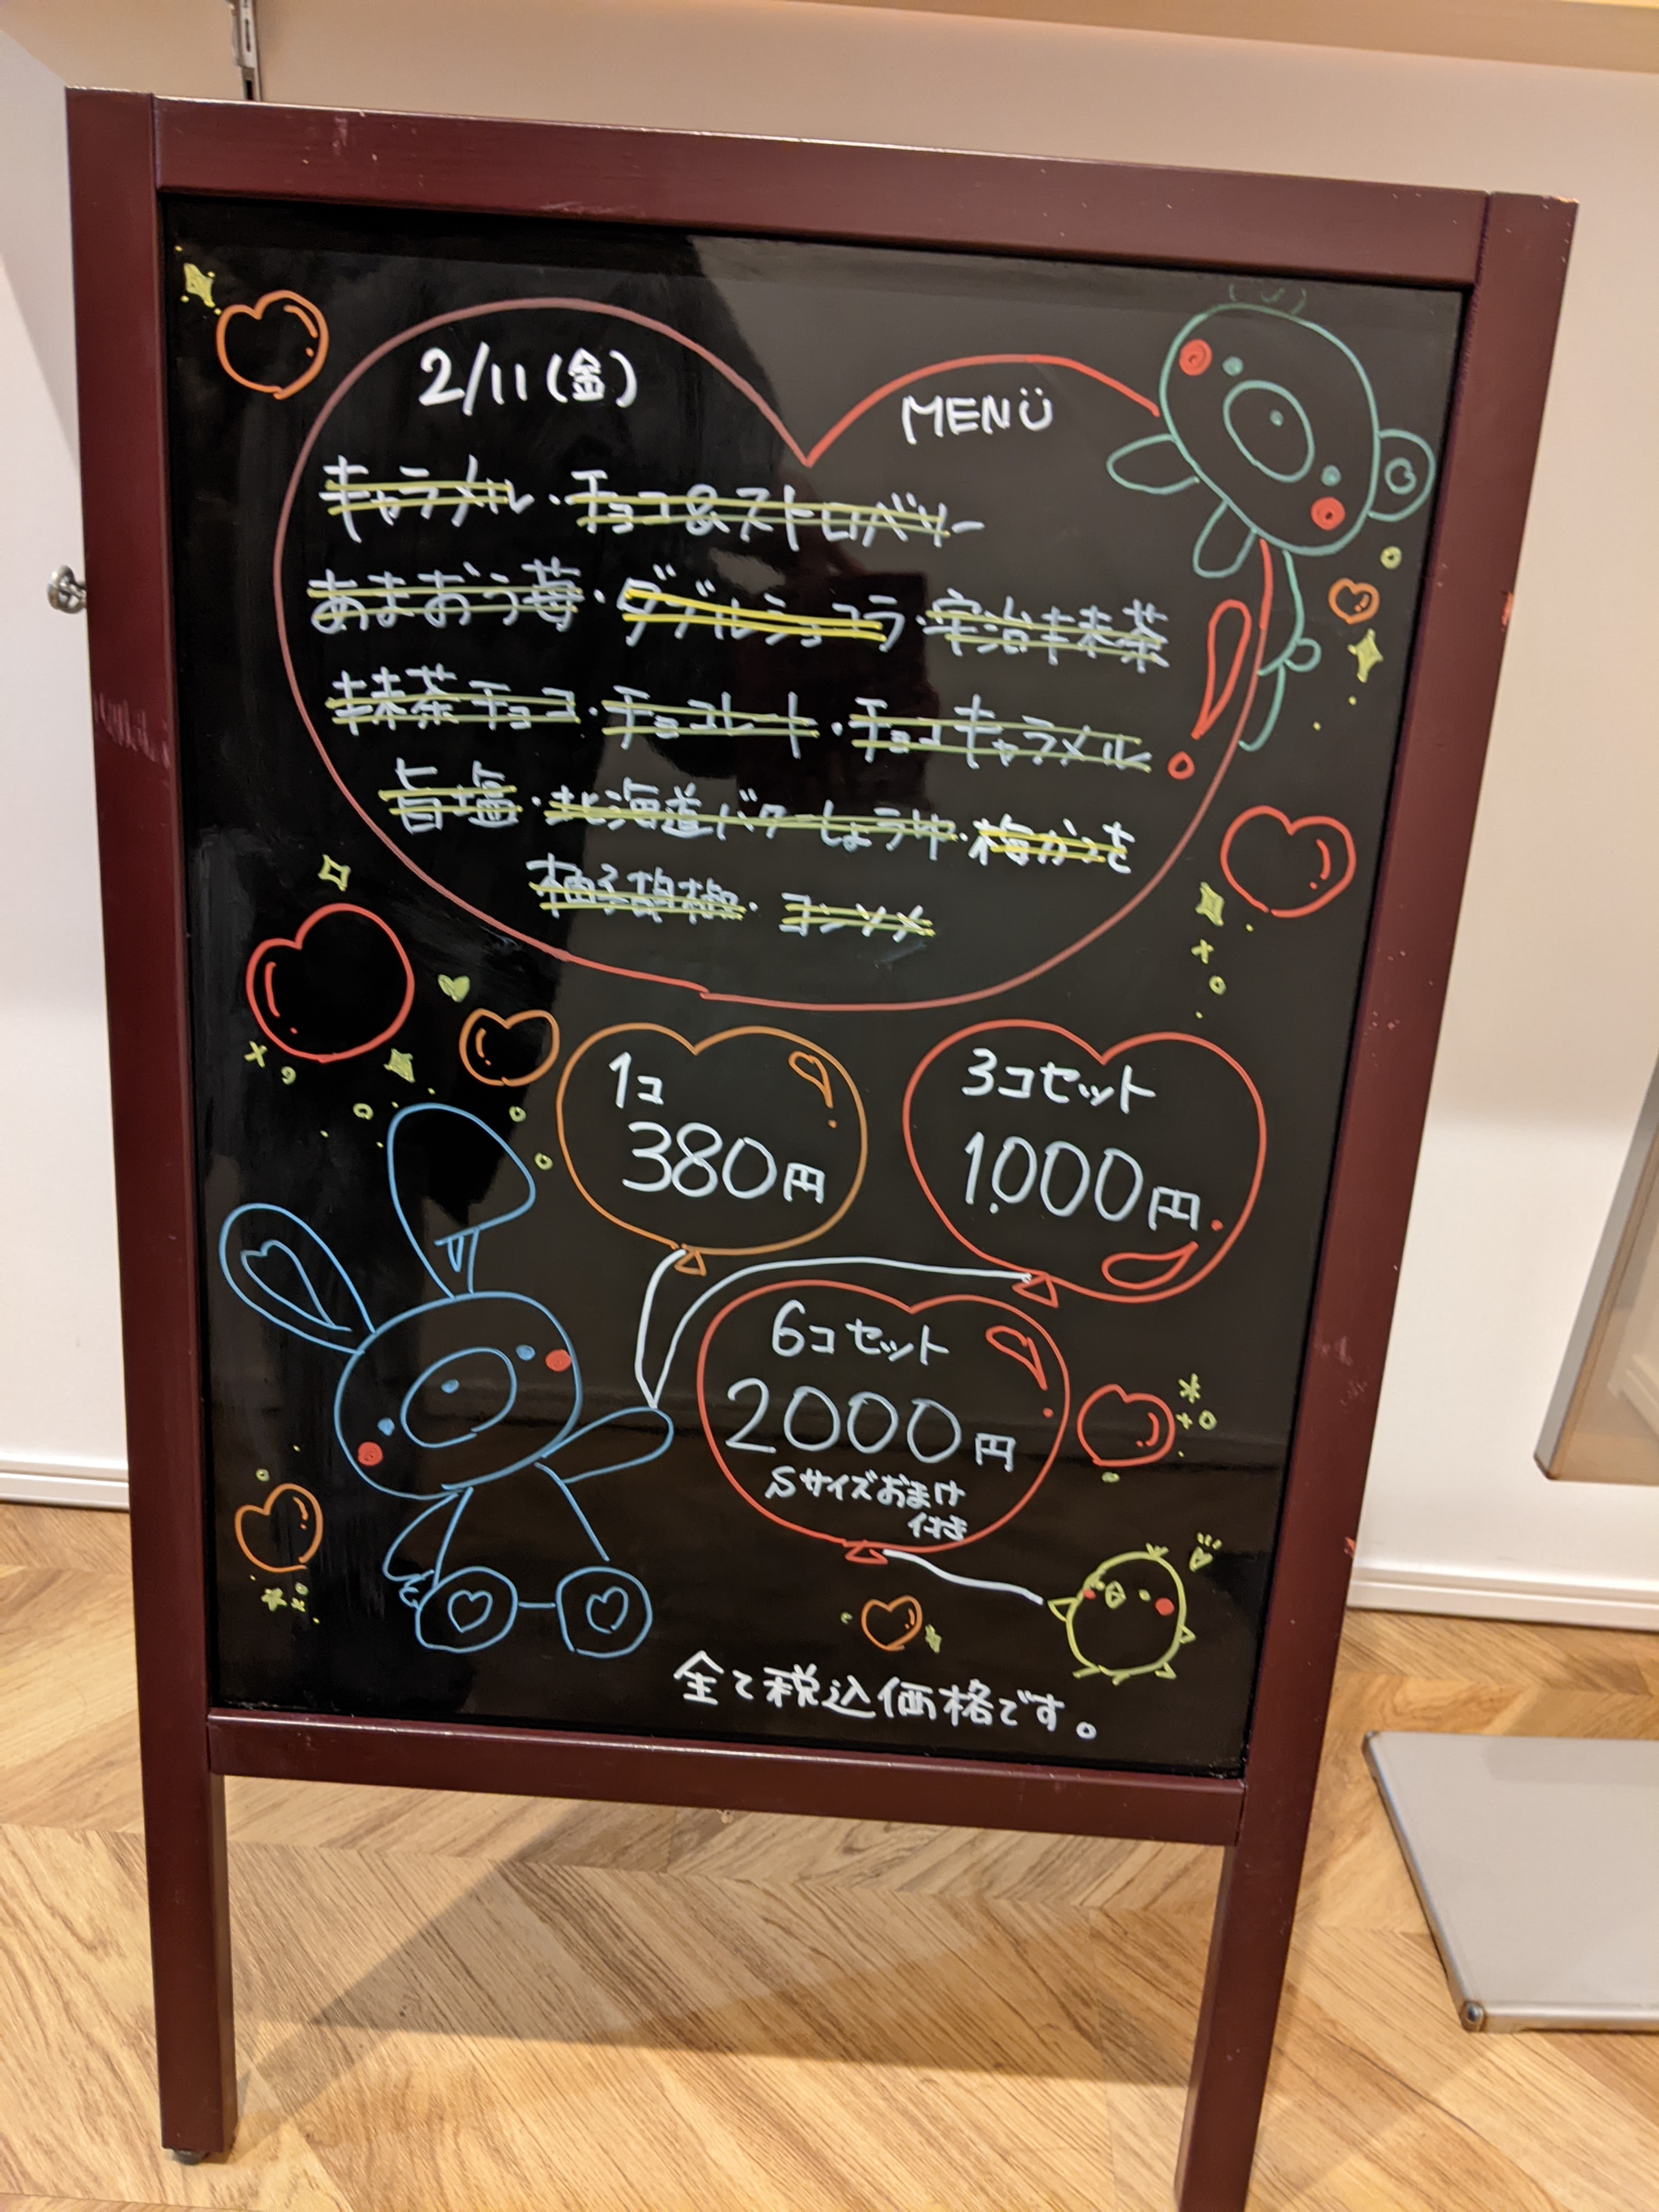 2/11(金)
MENU
キャラメル・チョコ&ストロベリー
あまおう苺・ダブルショコラ・宇治抹茶
抹茶チョコ・チョコレート・チョコキャラメル
旨塩・北海道バターしょうゆ・梅かつを
柚子胡椒・コンソメ
1コ
380円
3コセット
1,000円
6コセット
2000円
Sサイズおまけ
付き
全て税込価格です。